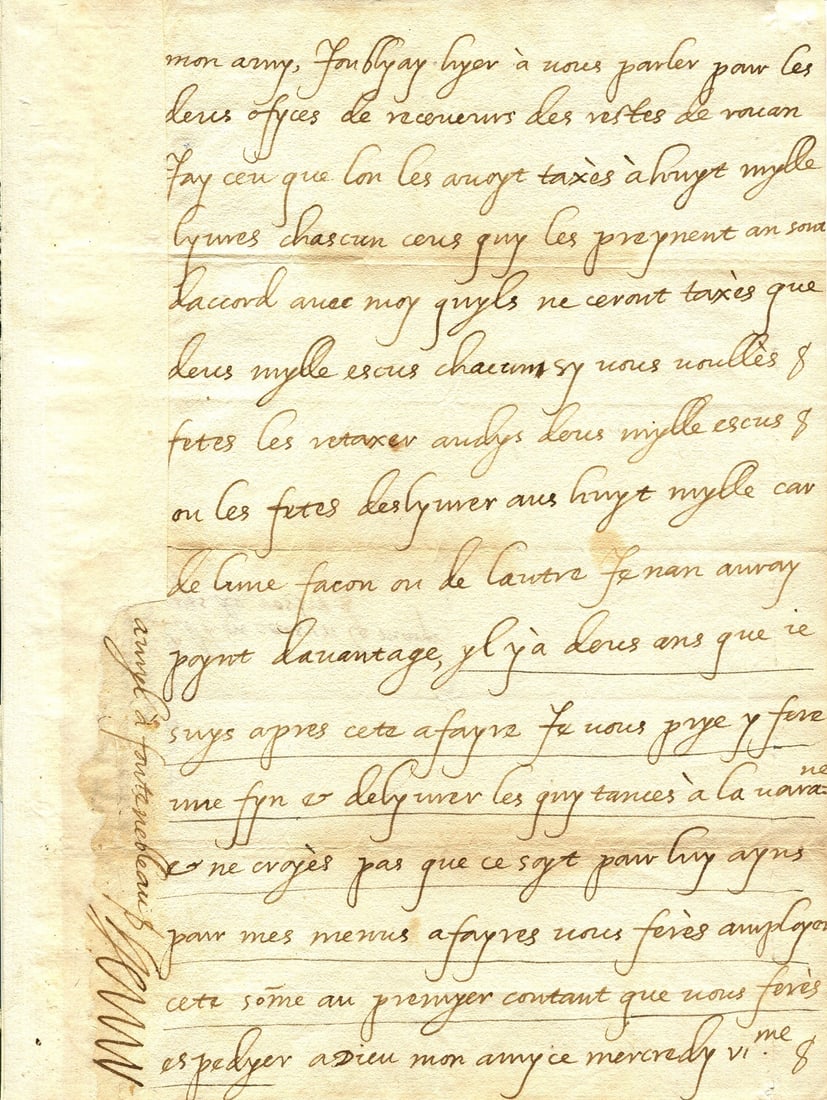 mon amy, Joublyay hyer à vous parler pour les
deus ofyces de receveurs des restes de rouan
Jay ceu que lon les avoyt taxès à huyt mylle
lyvres chascun ceus quy les preynent an sont
daccord avec moy quyls ne ceront taxès que
deus mylle escus chacun sy vous voullès &
fetes les retaxer audys deus mylle escus &
ou les fetes deslyvrer aus huyt mylle car
de lune facon ou de lautre Je nan auray
poynt davantage, yl yà deus ans que ie
suys apres cete afayre Je vous prye y fere
une fyn & delyvrer les quytances à la varane
& ne croyès pas que ce soyt pour luy ayns
pour mes menus afayres vous ferès amployer
cete sõme au premyer contant que vous ferès
espedyer aDieu mon amy ce mercredy vi.me &
avryl à fontenebleau &